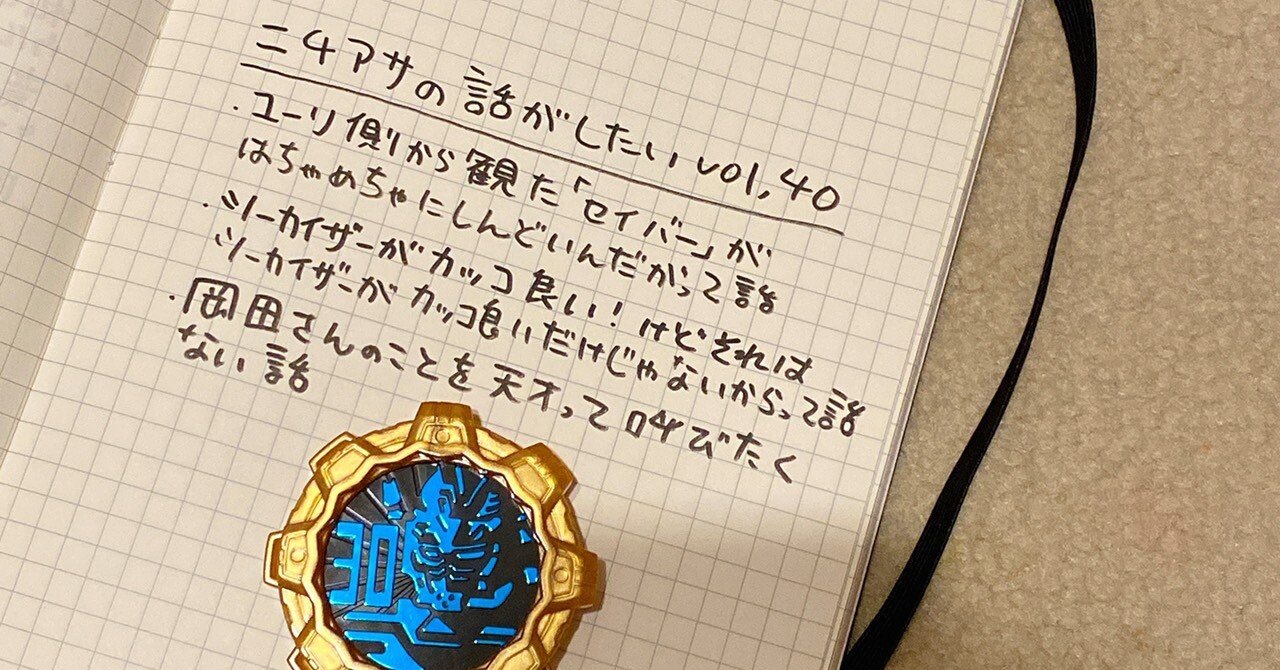 ニチアサの話がしたいvol,40
・ユーリ側から観た「セイバー」が
はちゃめちゃにしんどいんだがって話
・ツーカイザーがカッコ良い!けどそれは
ツーカイザーがカッコ良いだけじゃないからって話
・岡田さんのことを天才って呼びたく
ない話
30